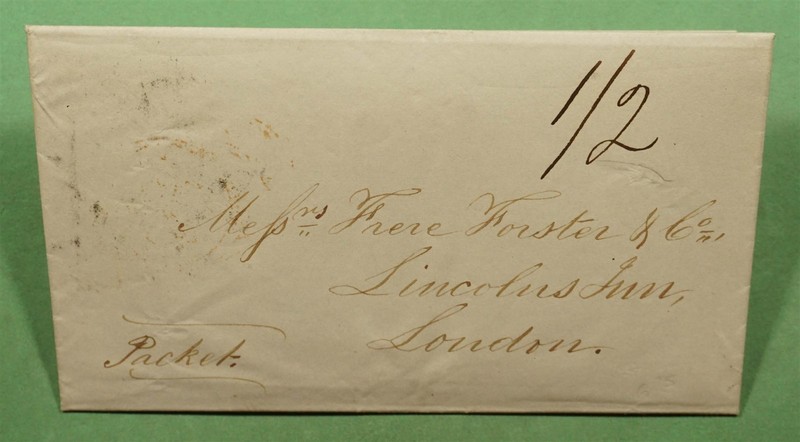 1/2
Messrs Frere Forster & Co,
Lincolns Inn,
London.
Packet.